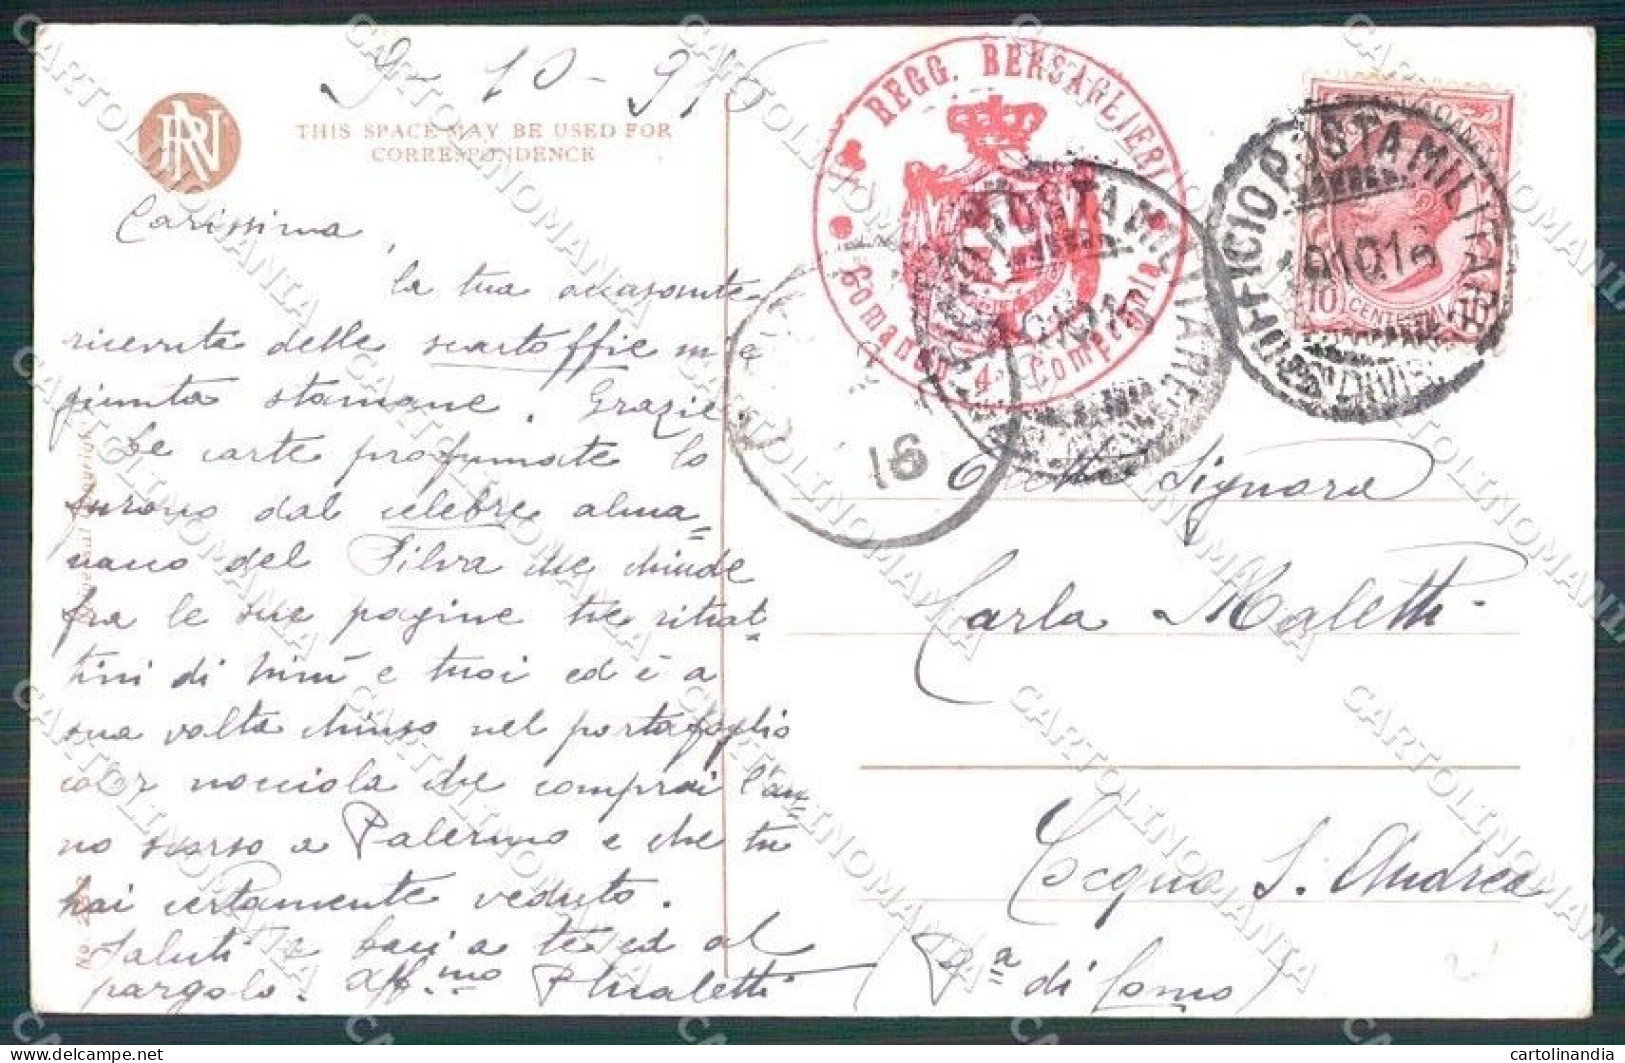 9-10-916
RN
THIS SPACE MAY BE USED FOR
CORRESPONDENCE
REGG. BERSAGLIERI
Comando 4 Compagnia
UFFICIO POSTA MILITARE
DIVIS
16
10 CENTESIMI
Carissima,
la tua
ricevuta delle scartoffie m'è
giunta stamane. Grazie
Le carte profumate lo
furono dal celebre alma=
nacco del Silva che chiude
fra le sue pagine tre ritrat=
tini di Mimì e tuoi ed è a
sua volta chiuso nel portafoglio
color nocciola che comprai l'an=
no scorso a Palermo e che tu
hai certamente veduto.
Saluti e baci a te ed al
pargolo. Aff.mo Maletti
Signora
Carla Maletti
S. Andrea
(P.a di Como)
No.
CARTOLINOMANIA
cartolinandia